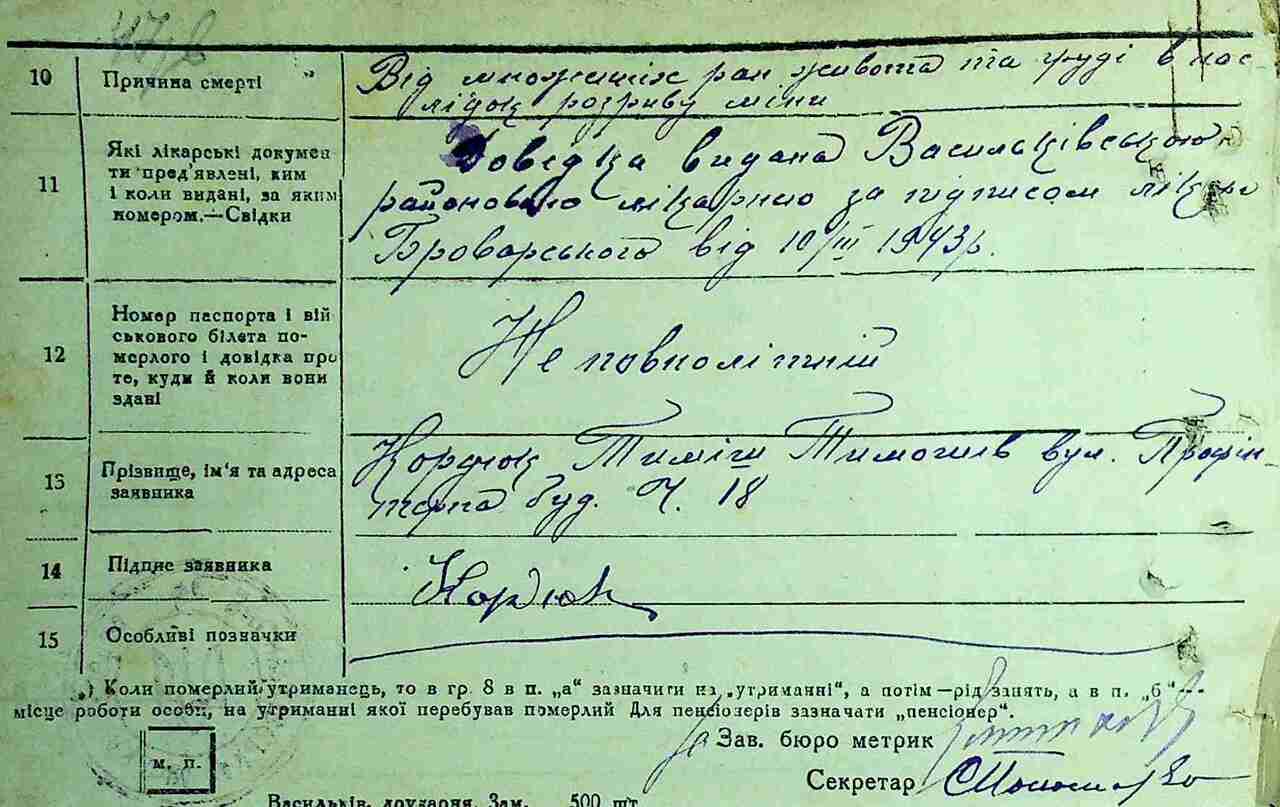 10 Причина смерті Від множиніх ран живота та груді в нас
лідок розриву міни
11 Які лікарські докумен
ти пред'явлені, ким
і коли видані, за яким
номером.—Свідки
Довідка видана Васильківською
районовою лікарнею за підписом лікаря
Броварського від 10/III 1943р.
12 Номер паспорта і вій
ськового білета по-
мерлого і довідка про
те, куди й коли вони
здані
Не повнолітній
13 Прізвище, ім'я та адреса
заявника
Кордюк Тиміш Тимошів вул. Профін-
терна буд. Ч. 18
14 Підпис заявника Кордюк
15 Особливі позначки
„) Коли померлий утриманець, то в гр. 8 в п. „а" зазначити на „утриманні", а потім—рід занять, а в п. „б"—
місце роботи особи, на утриманні якої перебував померлий Для пенсіонерів зазначати „пенсіонер".
За Зав. бюро метрик
м. п.
Секретар
Васильків, друкарня, Зам. 500 шт